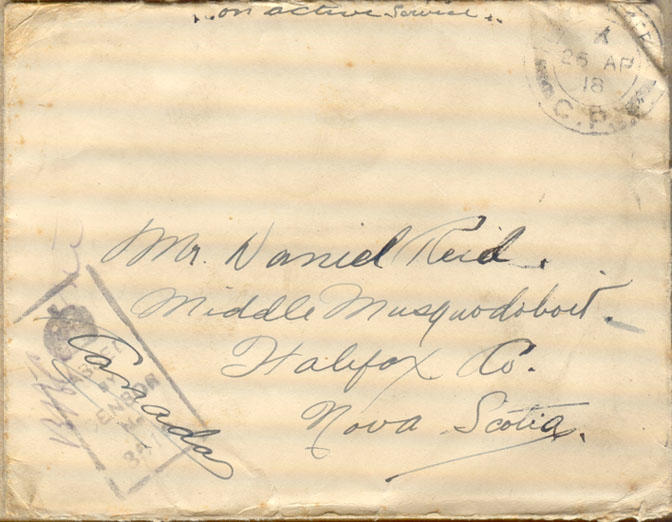 on active Service
X
26 AP
18
Mr. Daniel Reid.
Middle Musquodoboit.
Halifax Co.
Nova Scotia.
Canada
BY
CENSOR